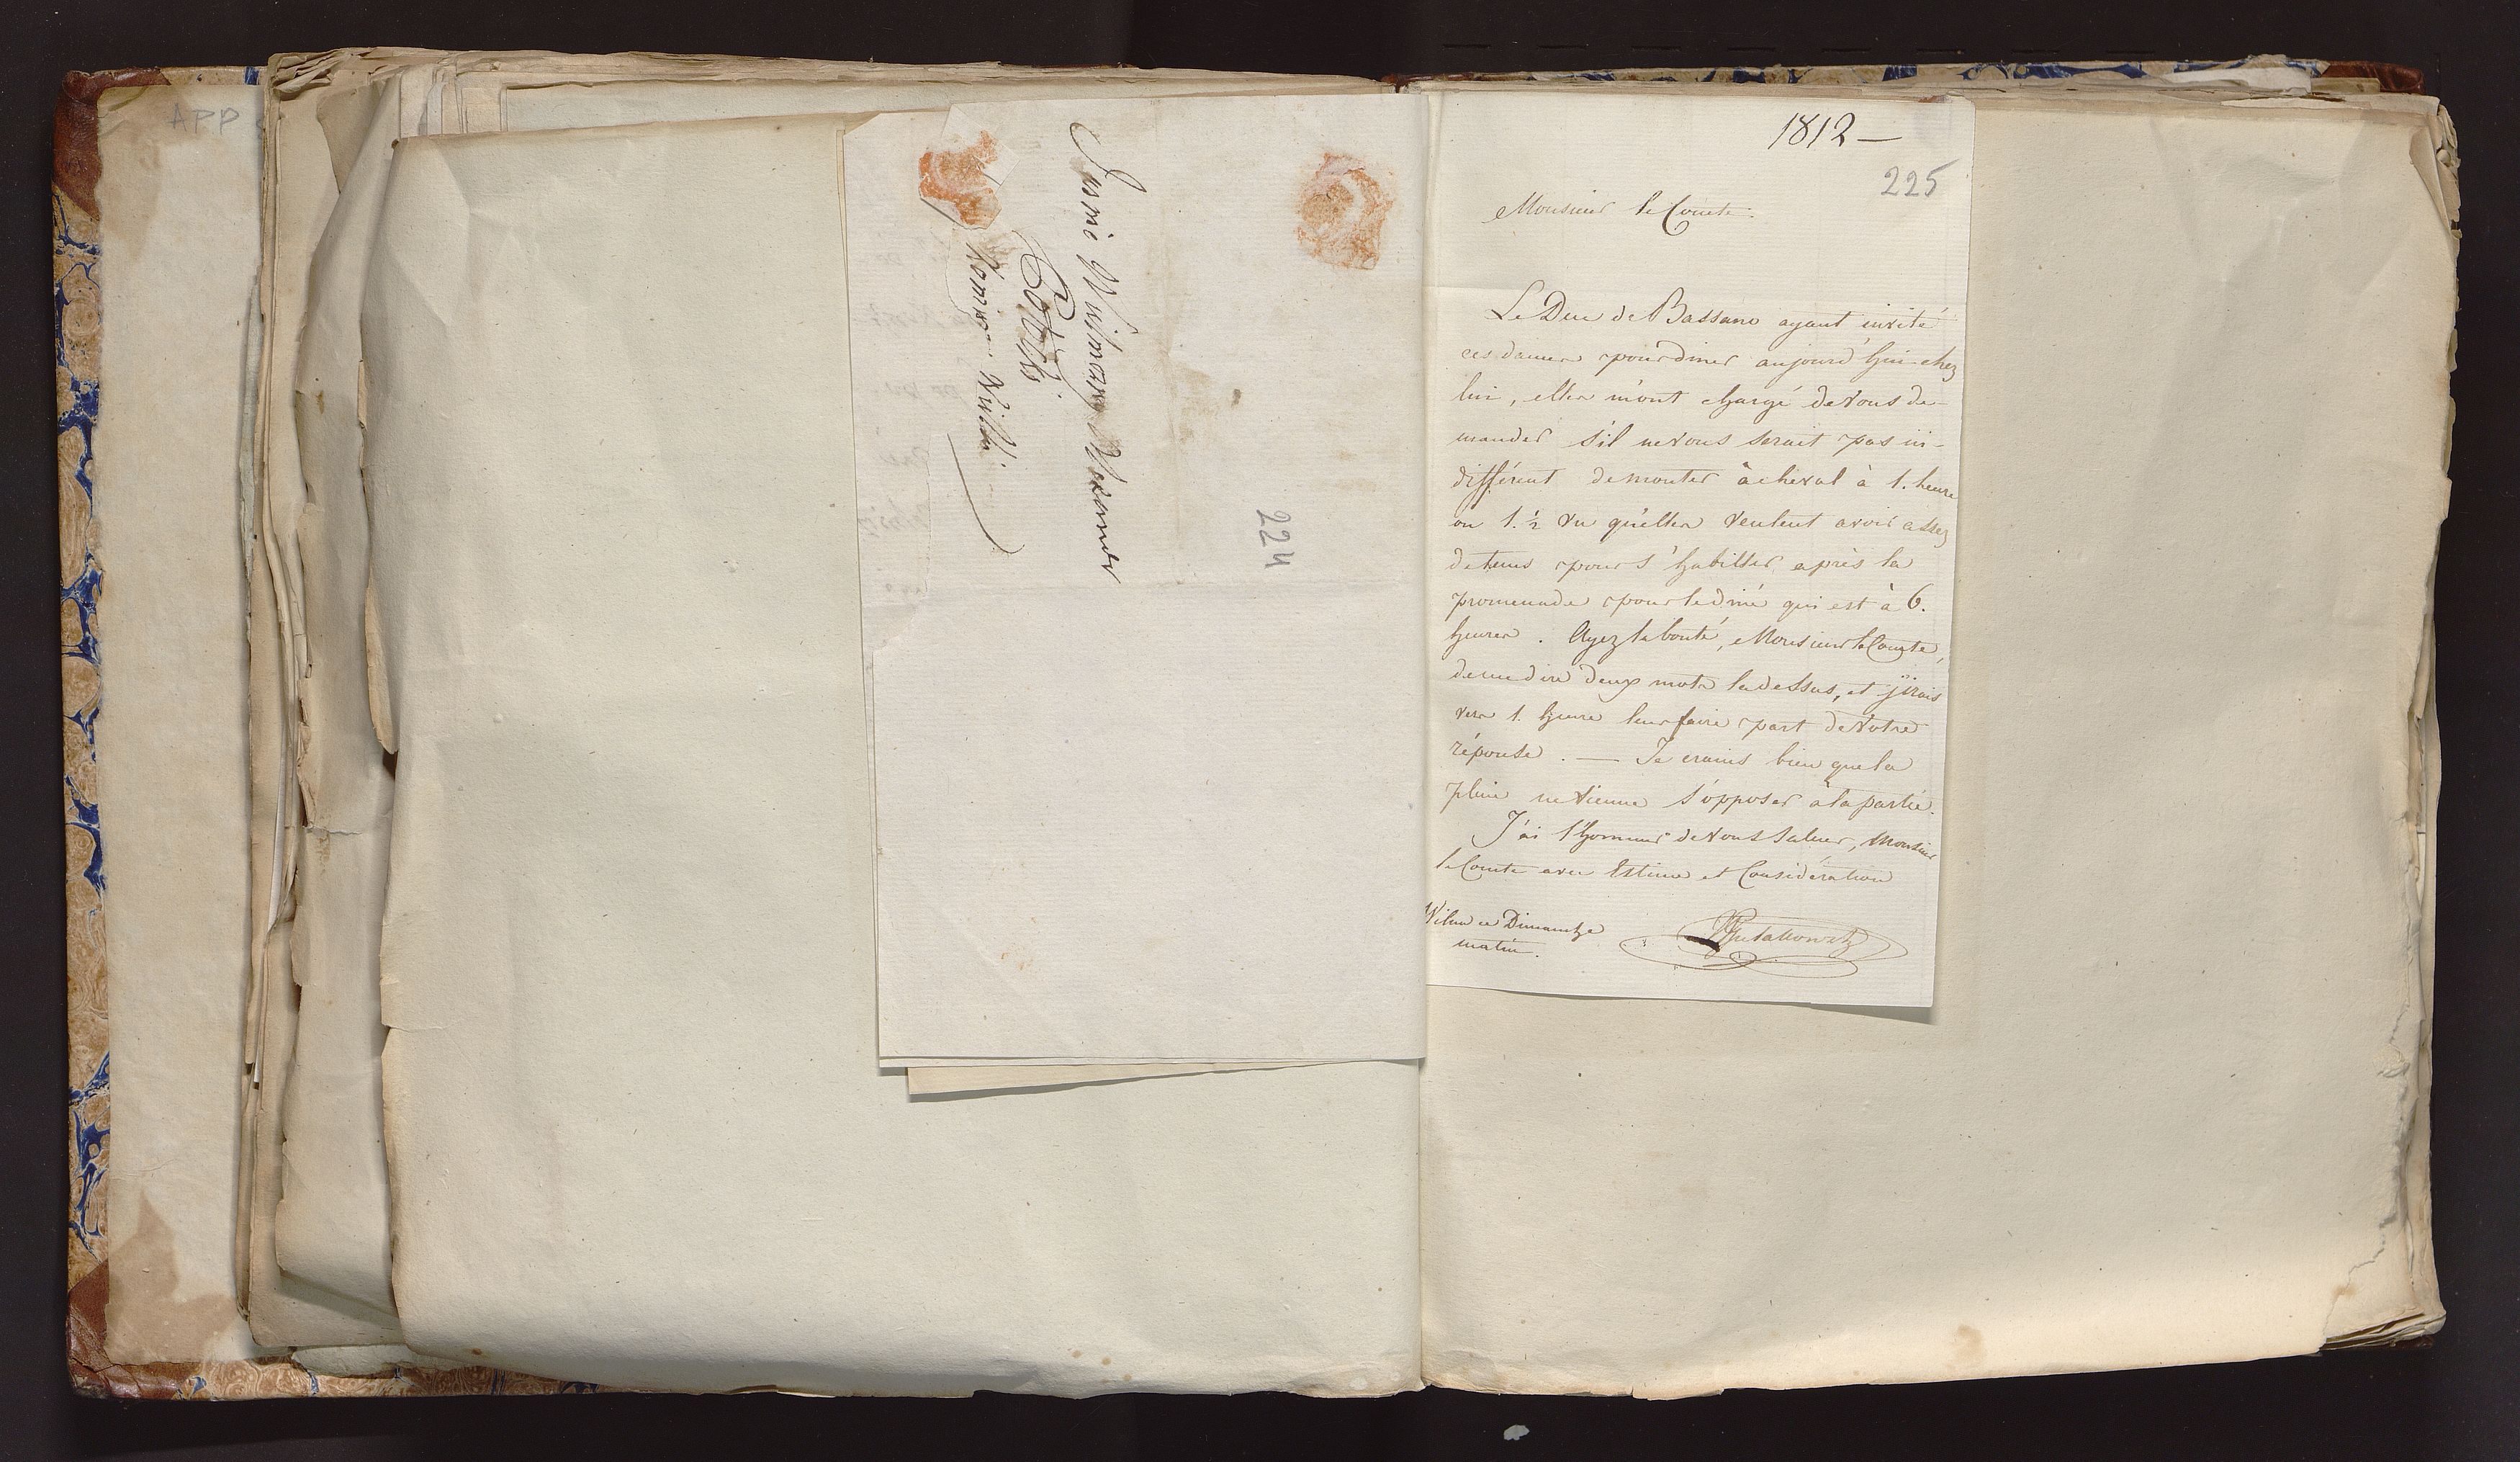 APP
Jasnie Wielmożny
Potocki
224
1812 —
225
Monsieur le Comte.
Le Duc de Bassano ayant invité
ces dames pour diner aujourd'hui chez
lui, elles m'ont chargé de vous de-
mander s'il ne vous serait pas in-
différent de monter à cheval à 1. heure
ou 1. ½ vu qu'elles veulent avoir assez
de tems pour s'habiller après la
promenade pour le diné qui est à 6.
heures. Ayez la bonté, Monsieur le Comte,
de me dire deux mots la dessus, et j'irais
vers 1. heure leur faire part de votre
réponse. — Je crains bien que la
pluie ne vienne s'opposer à la partie.
J'ai l'honneur de vous saluer, Monsieur
le Comte avec Estime et Considération
Vilna ce Dimanche
matin.